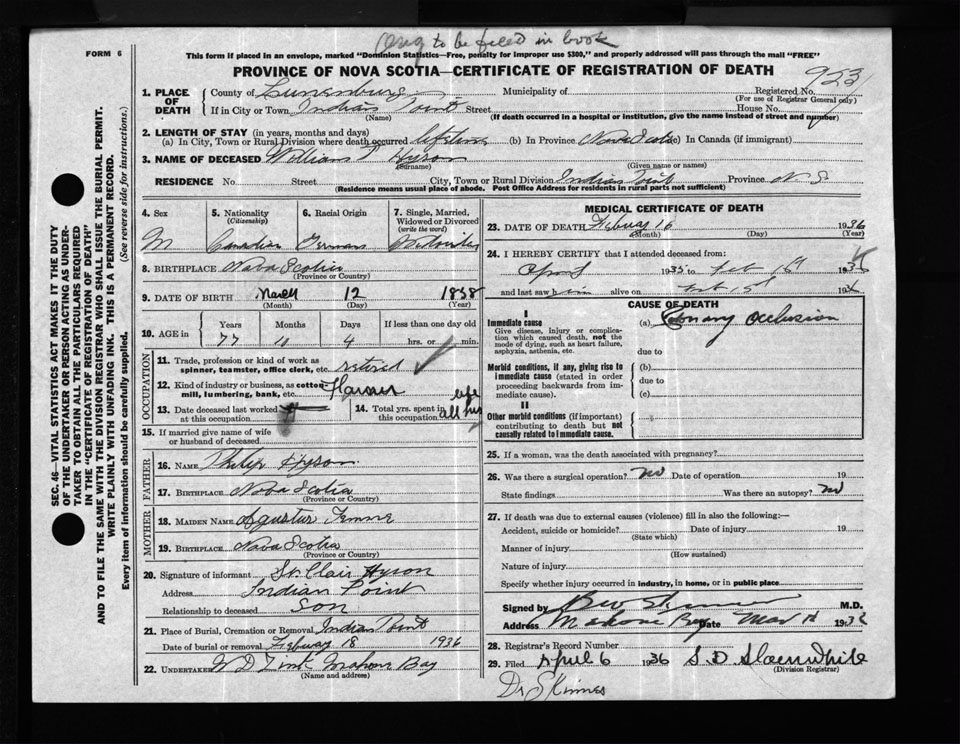 Orig to be filed in book
FORM 6
This form if placed in an envelope, marked "Dominion Statistics—Free, penalty for improper use $300," and properly addressed will pass through the mail "FREE"
PROVINCE OF NOVA SCOTIA—CERTIFICATE OF REGISTRATION OF DEATH
923
SEC. 46—VITAL STATISTICS ACT MAKES IT THE DUTY
OF THE UNDERTAKER OR PERSON ACTING AS UNDER-
TAKER TO OBTAIN ALL THE PARTICULARS REQUIRED
IN THE "CERTIFICATE OF REGISTRATION OF DEATH"
AND TO FILE THE SAME WITH THE DIVISION REGISTRAR WHO SHALL ISSUE THE BURIAL PERMIT.
WRITE PLAINLY WITH UNFADING INK. THIS IS A PERMANENT RECORD.
Every item of information should be carefully supplied. (See reverse side for instructions.)
1. PLACE OF DEATH
County of Lunenburg Municipality of Registered No.
(For use of Registrar General only)
If in City or Town Indian Point Street House No.
(Name) (If death occurred in a hospital or institution, give the name instead of street and number)
2. LENGTH OF STAY (in years, months and days)
(a) In City, Town or Rural Division where death occurred lifetime (b) In Province Nova Scotia (c) In Canada (if immigrant)
3. NAME OF DECEASED William Hyson
(Surname) (Given name or names)
RESIDENCE No. Street City, Town or Rural Division Indian Point Province N.S.
(Residence means usual place of abode. Post Office Address for residents in rural parts not sufficient)
4. Sex
M
5. Nationality
(Citizenship)
Canadian
6. Racial Origin
German
7. Single, Married,
Widowed or Divorced
(write the word)
8. BIRTHPLACE Nova Scotia
(Province or Country)
9. DATE OF BIRTH March 12 1858
(Month) (Day) (Year)
10. AGE in Years Months Days If less than one day old
77 10 4 hrs. or min.
OCCUPATION
11. Trade, profession or kind of work as
spinner, teamster, office clerk, etc. retired
12. Kind of industry or business, as cotton
mill, lumbering, bank, etc.
13. Date deceased last worked
at this occupation
14. Total yrs. spent in
this occupation all his life
15. If married give name of wife
or husband of deceased
FATHER
16. NAME Philip Hyson
17. BIRTHPLACE Nova Scotia
(Province or Country)
MOTHER
18. MAIDEN NAME
19. BIRTHPLACE Nova Scotia
(Province or Country)
20. Signature of informant St. Clair Hyson
Address Indian Point
Relationship to deceased Son
21. Place of Burial, Cremation or Removal Indian Point
Date of burial or removal Febuary 18 1936
22. UNDERTAKER Mahone Bay
(Name and address)
MEDICAL CERTIFICATE OF DEATH
23. DATE OF DEATH Febuary 16 1936
(Month) (Day) (Year)
24. I HEREBY CERTIFY that I attended deceased from:
April 1935 to Feb 16 1936
and last saw him alive on Feb 15 193
CAUSE OF DEATH
I
Immediate cause
Give disease, injury or complica-
tion which caused death, not the
mode of dying, such as heart failure,
asphyxia, asthenia, etc.
(a) Coronary occlusion
due to
Morbid conditions, if any, giving rise to
immediate cause (stated in order
proceeding backwards from im-
mediate cause).
(b)
due to
(c)
II
Other morbid conditions (if important)
contributing to death but not
causally related to immediate cause.
25. If a woman, was the death associated with pregnancy?
26. Was there a surgical operation? no Date of operation 19
State findings Was there an autopsy? no
27. If death was due to external causes (violence) fill in also the following:—
Accident, suicide or homicide? Date of injury 19
(State which)
Manner of injury
(How sustained)
Nature of injury
Specify whether injury occurred in industry, in home, or in public place
Signed by M.D.
Address Mahone Bay Date Mar 193
28. Registrar's Record Number
29. Filed April 6 1936
(Division Registrar)
Dr Skinner